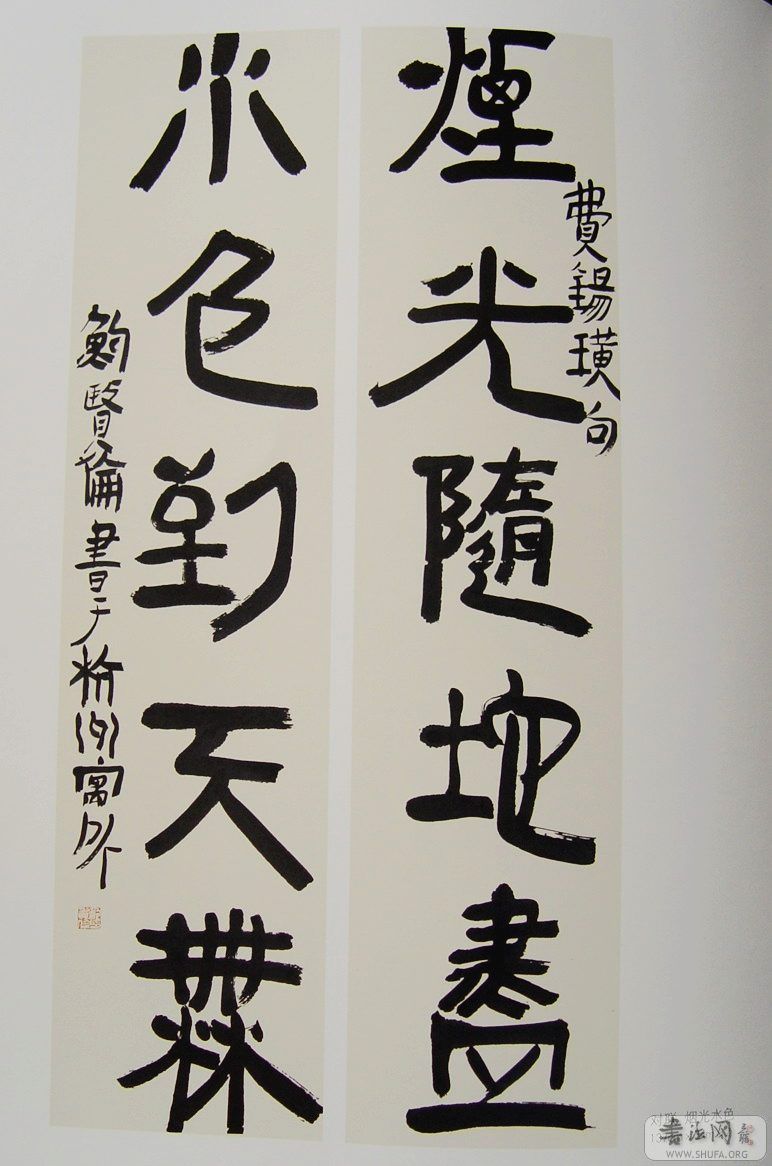 煙光隨地盡
費錫璜句
水色到天無
鮑賢倫書于杭州寓所
对联 烟光水色
書法网
WWW.SHUFA.ORG